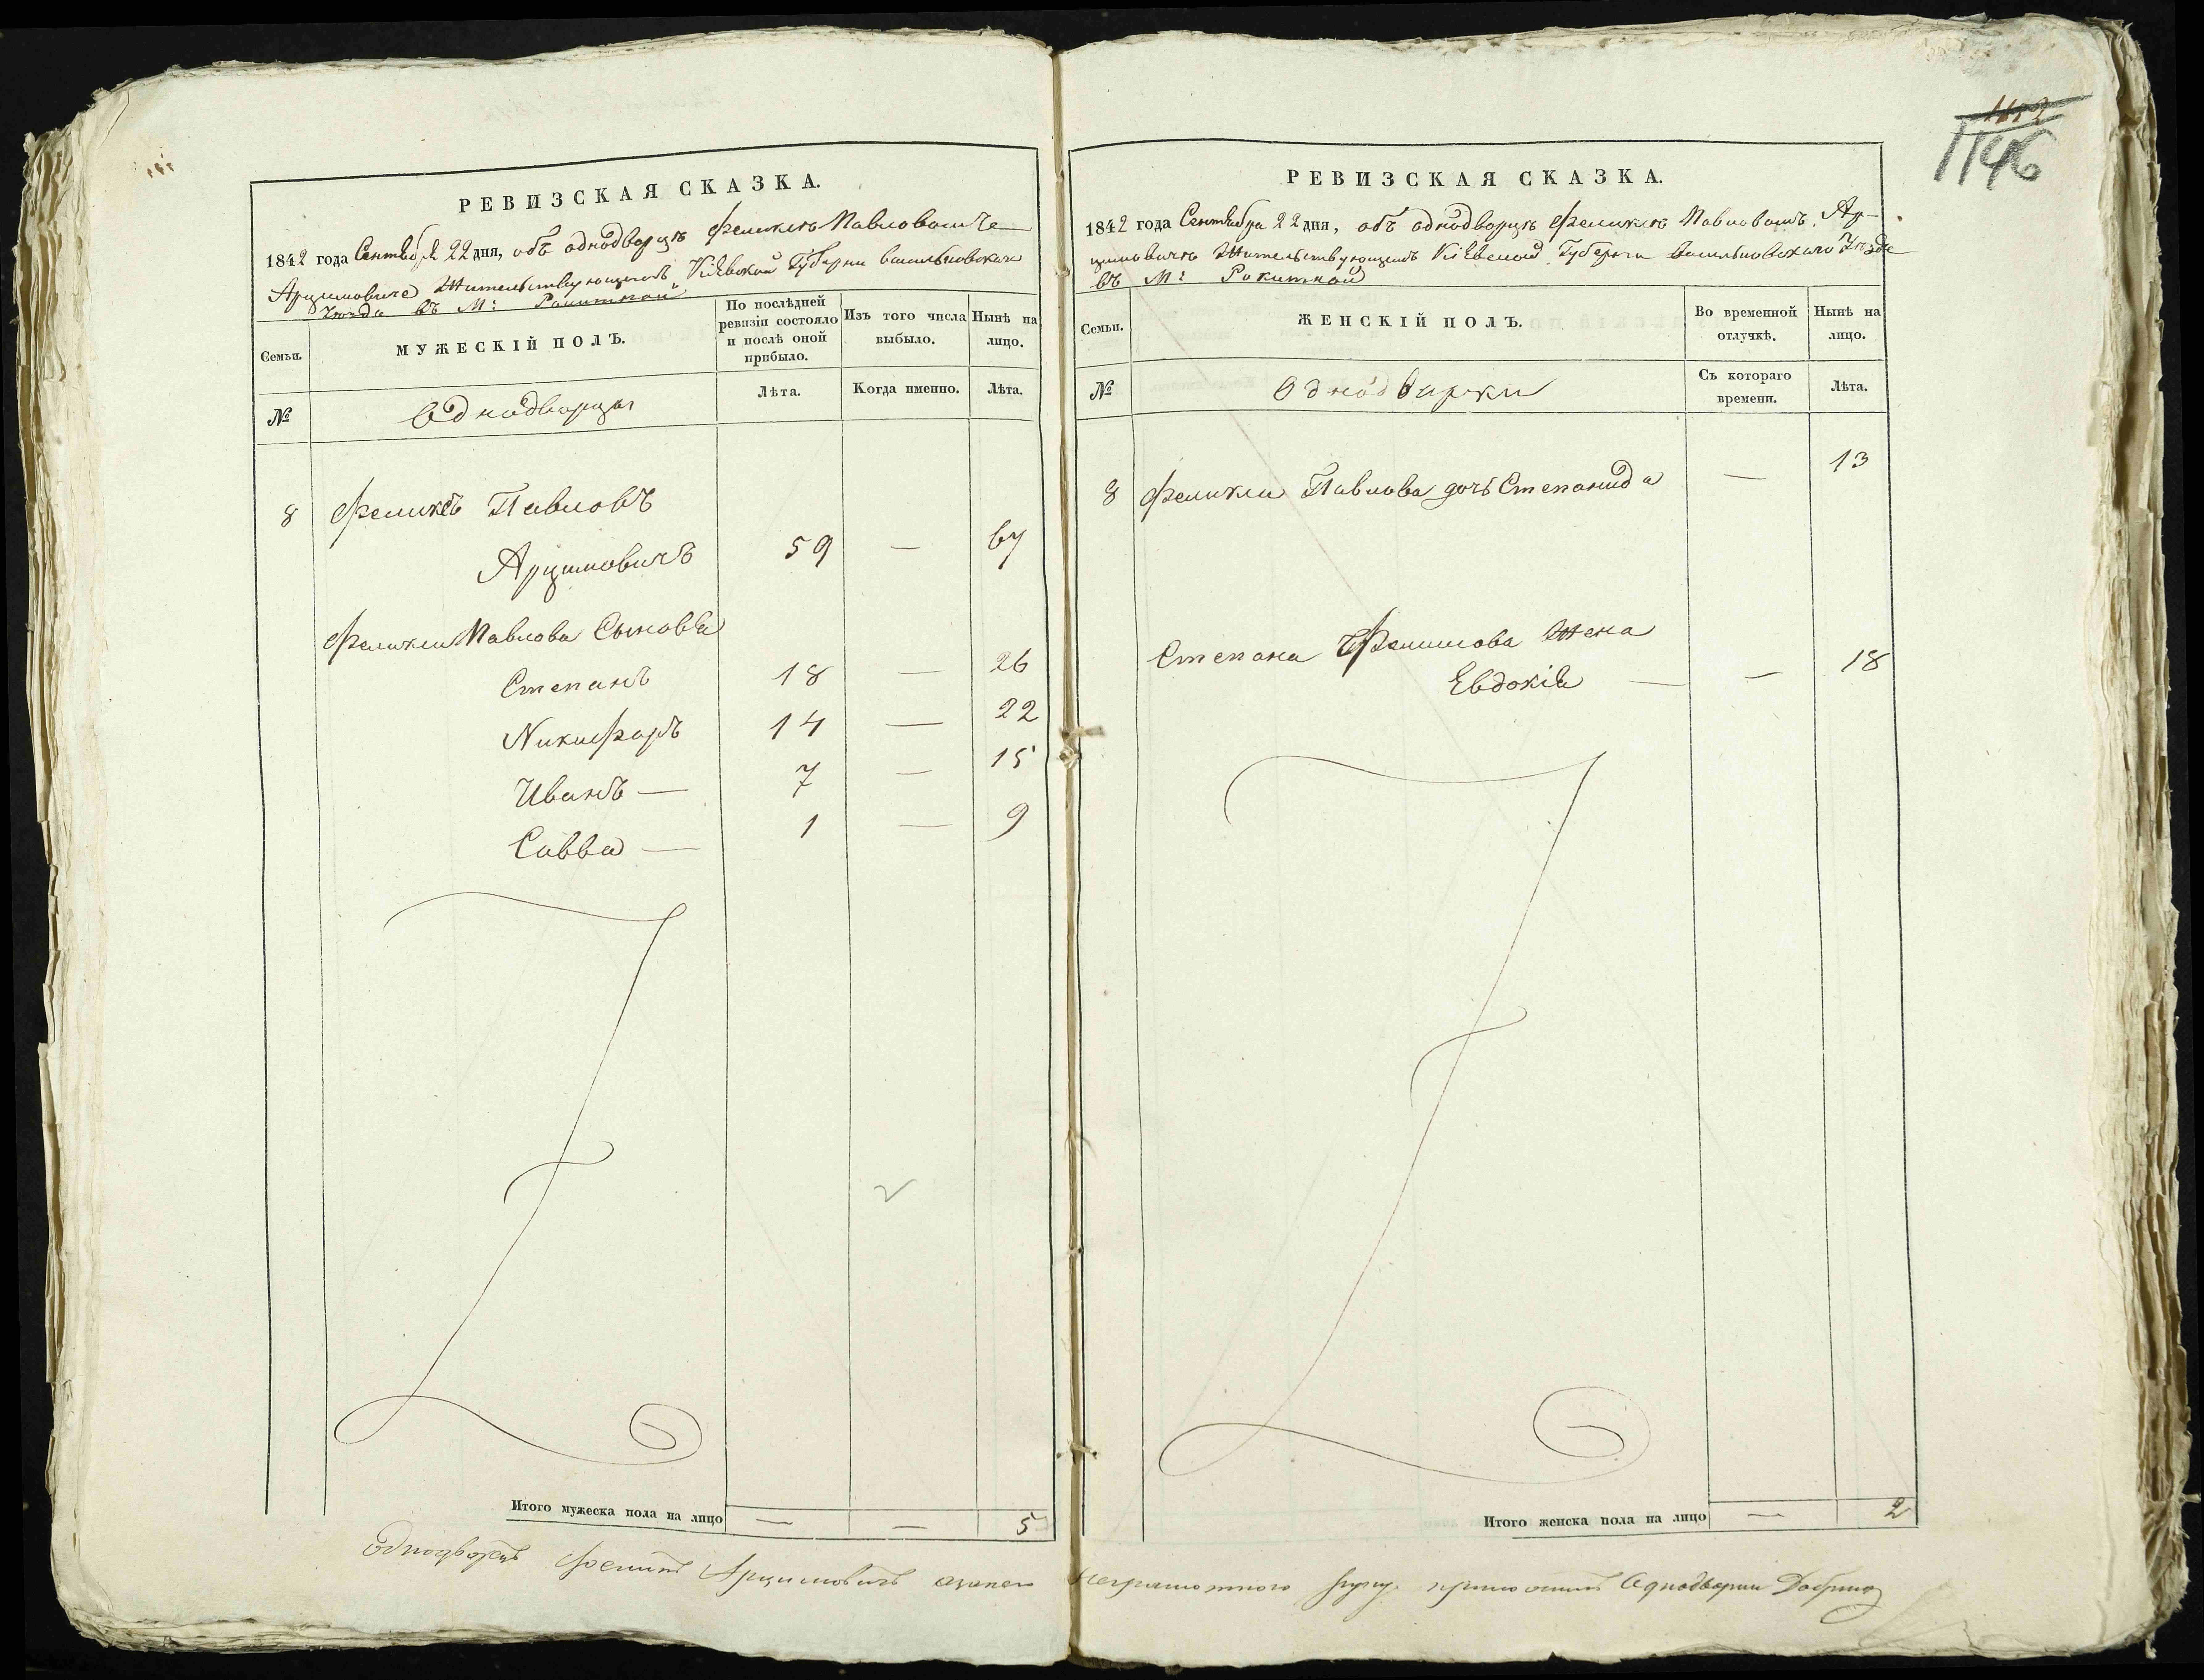 РЕВИЗСКАЯ СКАЗКА.
1842 года Сентября 22 дня, объ однодворцѣ Феликсѣ Павловомъ
Арцимовиче Жительствующемъ Кіевской Губернии Васильковскаго
Уезда въ М: Рокитной
Семьи.
МУЖЕСКІЙ ПОЛЪ.
По послѣдней
ревизіи состояло
и послѣ оной
прибыло.
Изъ того числа
выбыло.
Нынѣ на
лицо.
№
Однодворцы
Лѣта.
Когда именно.
Лѣта.
8 Феликсъ Павловъ
Арцимовичъ 59 — 67
Феликса Павлова Сыновья
Степанъ 18 — 26
Никифоръ 14 — 22
Иванъ — 7 — 15
Савва — 1 — 9
Итого мужеска пола на лицо — — 5
1146
РЕВИЗСКАЯ СКАЗКА.
1842 года Сентября 22 дня, объ однодворцѣ Феликсѣ Павловомъ Ар-
цимовичѣ Жительствующемъ Кіевской Губернии Васильковскаго Уезда
въ М: Рокитной
Семьи.
ЖЕНСКІЙ ПОЛЪ.
Во временной
отлучкѣ.
Нынѣ на
лицо.
№
Однодворки
Съ котораго
времени.
Лѣта.
8 Феликса Павлова дочь Степанида — 13
Степана Феликсова Жена
Евдокія — — 18
Итого женска пола на лицо — 2
Однодворецъ Феликсъ Арцимовичъ неграмотного руку приложилъ Однодворец